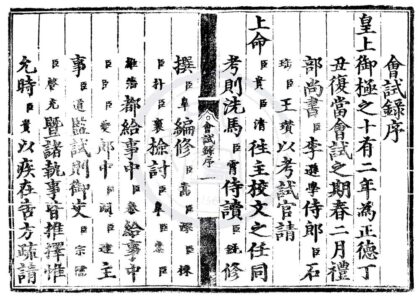 會試錄序
皇上御極之十有二年為正德丁
丑復當會試之期春二月禮
部尚書臣李遜學侍郎臣石
珤臣王瓚以考試官請
上命臣貴臣清往主校文之任同
考則洗馬臣霄侍讀臣銑修
會試錄序
撰臣臯編修
臣檢討臣
都給事中臣給事中
臣郎中臣臣主
事臣監試則御史臣宗
臣啓充暨諸執事皆推擇惟
允時臣貴以疾在告方疏請